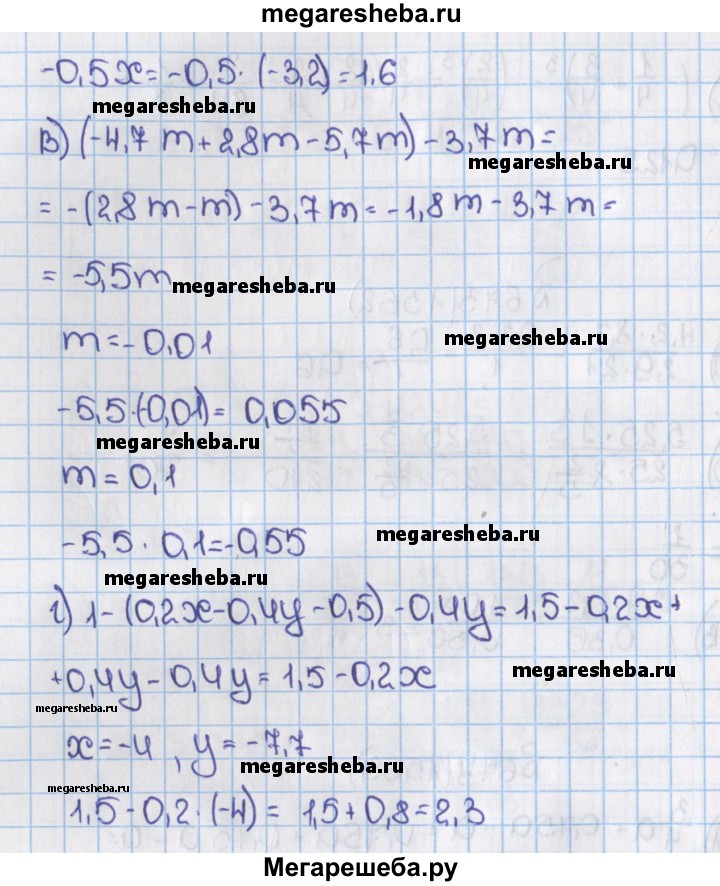 megaresheba.ru
-0,5x = -0,5 · (-3,2) = 1.6
megaresheba.ru
в) (-4,7 m + 2,8m - 5,7m) - 3,7m =
megaresheba.ru
= -(2,8m - m) - 3,7m = -1,8m - 3,7m =
= -5,5m
megaresheba.ru
m = -0,01
megaresheba.ru
-5,5·(-0,01) = 0,055
megaresheba.ru
m = 0,1
-5,5 · 0,1 = -0,55
megaresheba.ru
megaresheba.ru
г) 1 - (0,2x - 0,4y - 0,5) - 0,4y = 1,5 - 0,2x +
+0,4y - 0,4y = 1,5 - 0,2x
megaresheba.ru
megaresheba.ru
x = -4, y = -7,7
megaresheba.ru
megaresheba.ru
1,5 - 0,2 · (-4) = 1,5 + 0,8 = 2,3
Мегарешеба.ру